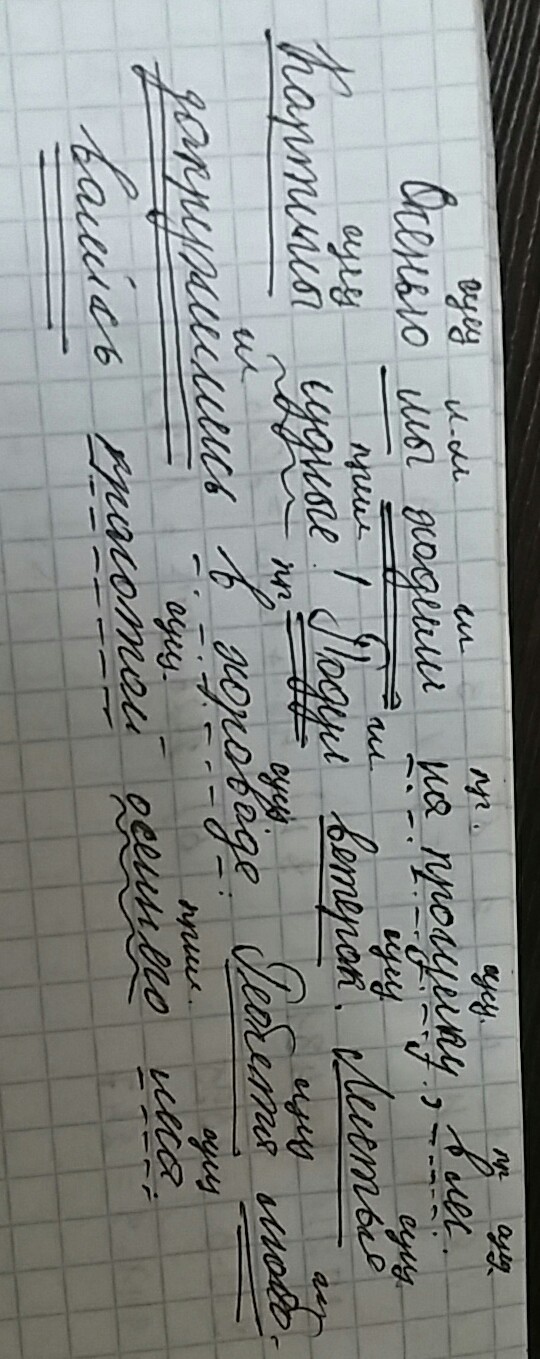 сущ гл пр. сущ. пр сущ.
Осенью мы ходили на прогулку в лес.
сущ прил гл сущ сущ
Картины чудные! Подул ветерок. Листья
гл пр сущ. сущ гл
закружились в хороводе. Ребята любо-
сущ. прил. сущ
вались красотой осеннего леса